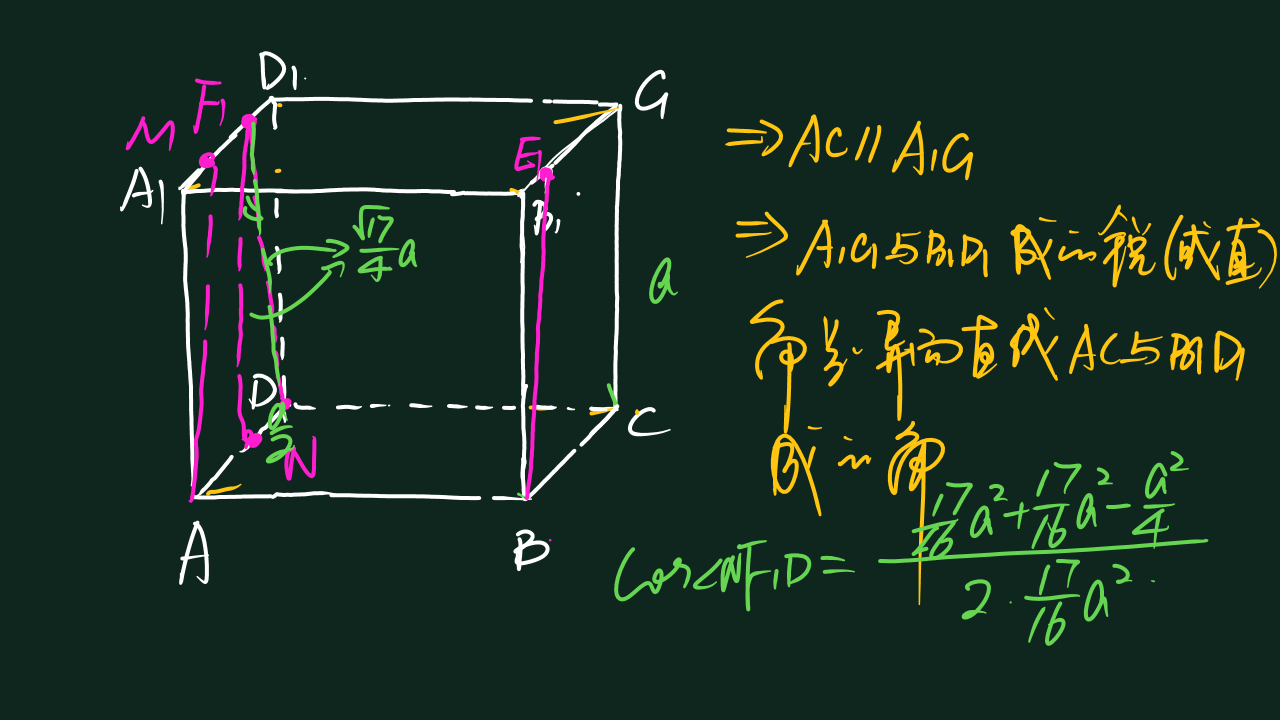 D₁
G
F₁
M
E₁
A₁
B₁
√17/4 a
a
D
a/2
N
C
A
B
⇒ AC∥A₁G
⇒ A₁G与B₁D₁成的锐(或直)
角为异面直线AC与B₁D₁
成的角
cos∠NF₁D = (17/16 a² + 17/16 a² - a²/4) / (2·17/16 a²)